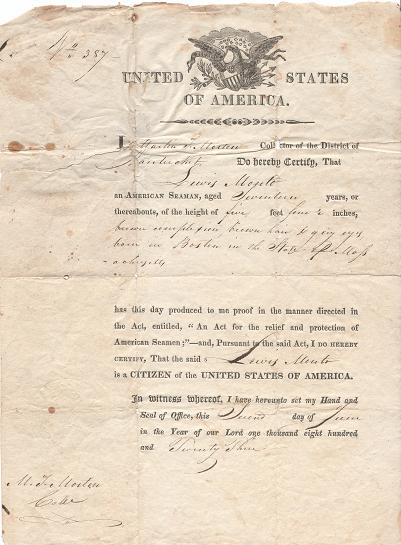 No 387
UNITED STATES
OF AMERICA.
I Martin T. Morton Collector of the District of
Nantucket, Do hereby Certify, That
Lewis
an AMERICAN SEAMAN, aged Seventeen years, or
thereabouts, of the height of five feet four ½ inches,
brown complexion, brown hair & gray eyes
born in Boston in the State of Mass
achusetts
has this day produced to me proof in the manner directed in
the Act, entitled, "An Act for the relief and protection of
American Seamen;"—and, Pursuant to the said Act, I DO HEREBY
CERTIFY, That the said Lewis
is a CITIZEN of the UNITED STATES OF AMERICA.
In witness whereof, I have hereunto set my Hand and
Seal of Office, this Second day of June
in the Year of our Lord one thousand eight hundred
and Twenty Three
M. T. Morton
Collr